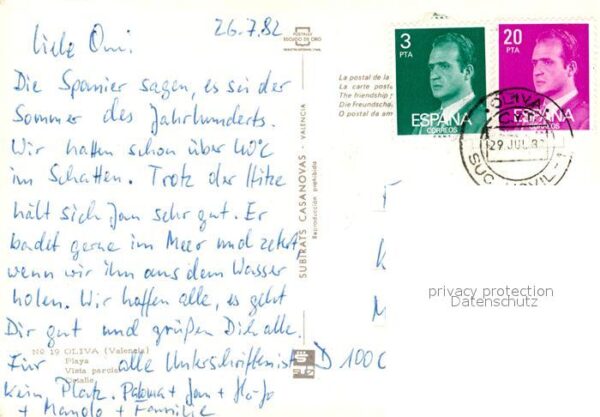 26.7.82
Liebe Omi!
Die Spanier sagen, es sei der
Sommer des Jahrhunderts.
Wir hatten schon über 40°C
im Schatten. Trotz der Hitze
hält sich Jan sehr gut. Er
badet gerne im Meer und zetert,
wenn wir ihn aus dem Wasser
holen. Wir hoffen alle, es geht
Dir gut und grüßen Dich alle.
Für alle Unterschriften ist
kein Platz. Paloma + Jan + Ha-Jo
+ Manolo + Familie
No 19 OLIVA (Valencia)
Playa
Vista parcial
Detalle
SUBIRATS CASANOVAS - VALENCIA
Reproducción prohibida
POSTALES
ESCUDO DE ORO
La postal de la
La carte posta
The friendship
Die Freundscha
O postal da am
3
PTA
ESPAÑA
CORREOS
20
PTA
ESPAÑA
CORREOS
OLIVA
29 JUL 8
SUC
D 100
privacy protection
Datenschutz